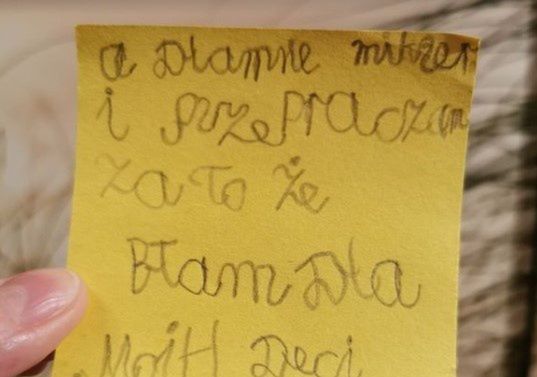 a Dlamnie mikser
i przepraczam
za to że
Błam Dla
Moith Deci